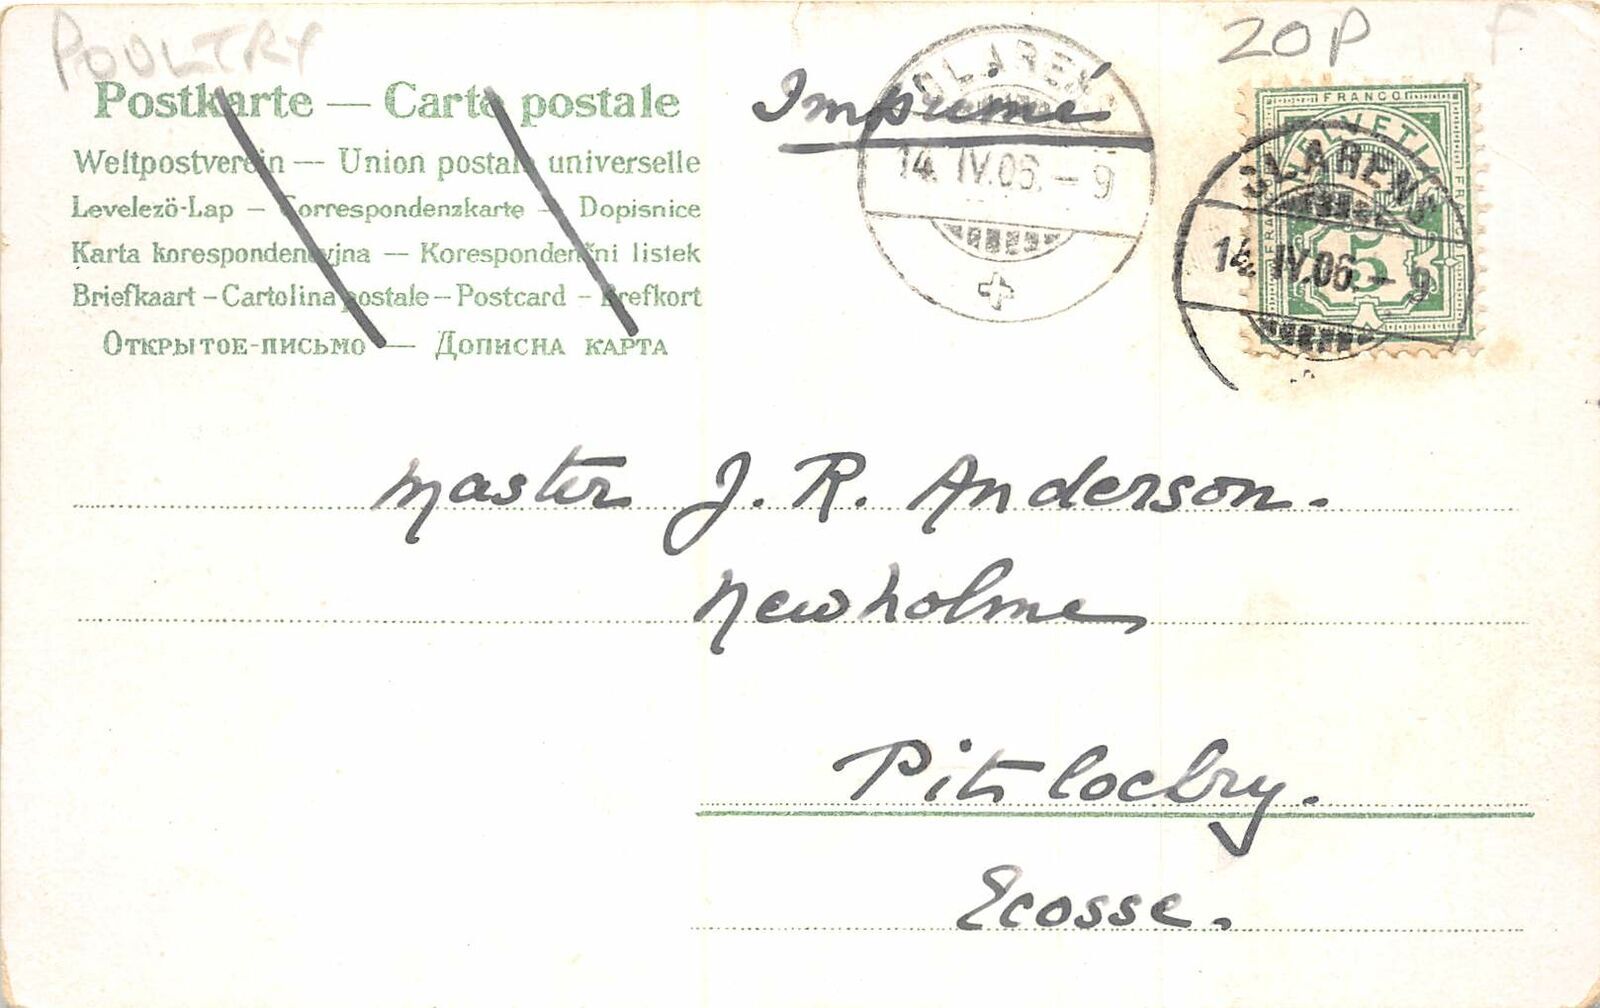 POULTRY
20P
F
Postkarte — Carte postale
Weltpostverein — Union postale universelle
Levelező-Lap — Correspondenzkarte — Dopisnice
Karta korespondencyjna — Korespondenční listek
Briefkaart – Cartolina postale – Postcard – Brefkort
Открытое-письмо — Дописна карта
Imprimé
CLARENS
14. IV.06. – 9
FRANCO
HELVETIA
5
CLARENS
14. IV.06. – 9
Master J. R. Anderson.
Newholme
Pitlochry.
Ecosse.